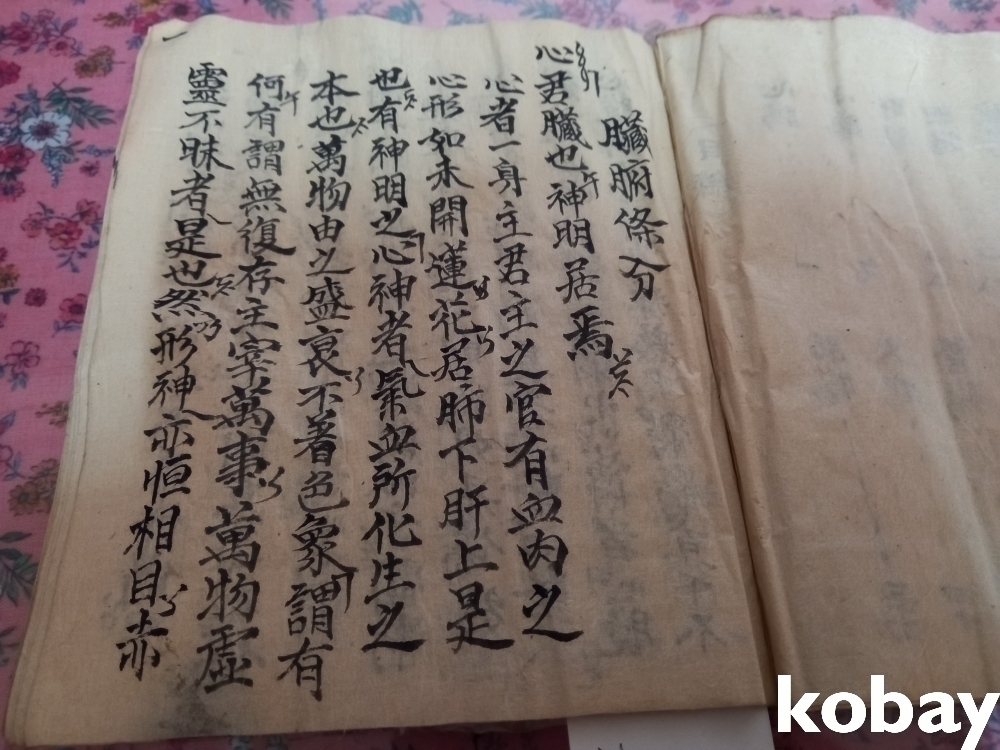 臟腑條分
心君臟也神明居焉
心者一身主君主之官有血肉之
心形如未開蓮花居肺下肝上是
也有神明之心神者氣血所化生之
本也萬物由之盛衰不着色象謂有
何有謂無復存主宰萬事萬物虛
靈不昧者是也然形神亦恒相目赤
kobay